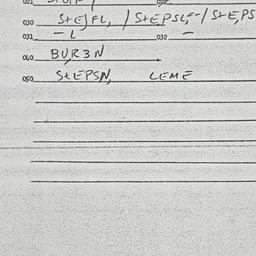 030 StEJFL, / StEPSLF-/ StEPS
031 - L 032 -
040 BUR3N
050 StEPSN, LEME